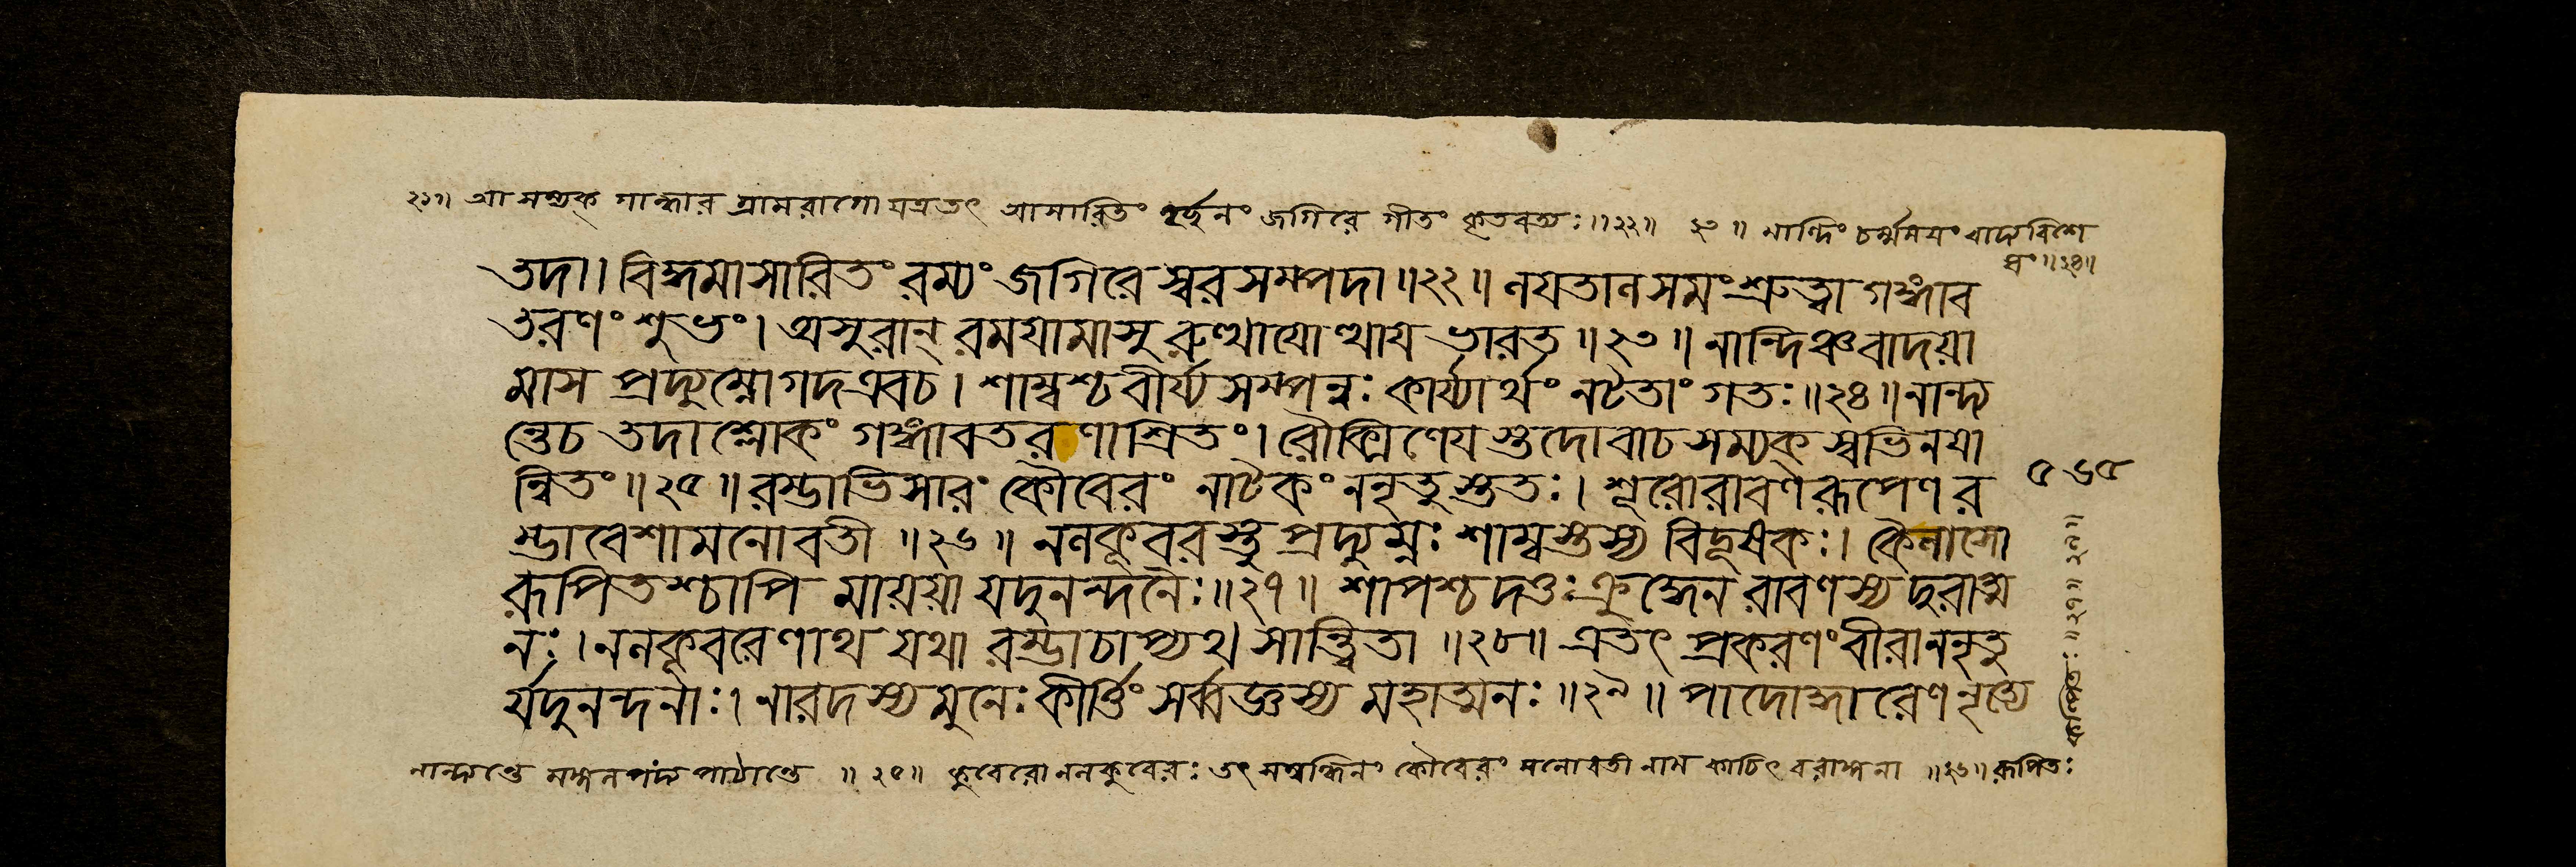 ২১॥ আ সম্যক্ গান্ধার গ্রামরাগো যত্রতৎ আসারিতং জগিরে গীতং কৃতবত্যঃ॥২২॥ ২৩॥ নান্দিং চর্ম্মময়ং বাদ্যবিশে
ষং॥২৪॥
তদা। বিদ্ধমাসারিতং রম্যং জগিরে স্বরসম্পদা॥২২॥ লয়তালসমং শ্রুত্বা গঙ্গাব
তরণং শুভং। অসুরান্ রময়ামাসুরুত্থায়োত্থায় ভারত॥২৩॥ নান্দিঞ্চবাদয়া
মাস প্রদ্যুম্নোগদএবচ। শাম্বশ্চবীর্য্যসম্পন্নঃ কার্য্যার্থং নটতাং গতঃ॥২৪॥ নান্দ্য
ন্তেচ তদাশ্লোকং গঙ্গাবতরণাশ্রিতং। রৌক্মিণেয়স্তদোবাচসম্যক্ স্বভিনয়া
ন্বিতং॥২৫॥ রম্ভাভিসারং কৌবেরং নাটকং ননৃতুস্ততঃ। শূরোরাবণরূপেণর
ম্ভাবেশামনোবতী॥২৬॥ নলকূবরস্তু প্রদ্যুম্নঃ শাম্বস্তস্য বিদূষকঃ। কৈলাসো
রূপিতশ্চাপি মায়য়া যদুনন্দনৈঃ॥২৭॥ শাপশ্চদত্তঃ ক্রুদ্ধেন রাবণস্য দুরাত্ম
নঃ। নলকূবরেণাথ যথা রম্ভাচাপ্যথ সান্ত্বিতা॥২৮॥ এতৎ প্রকরণং বীরাননৃতু
র্যদুনন্দনাঃ। নারদস্য মুনেঃ কীর্ত্তিং সর্ব্বজ্ঞস্য মহাত্মনঃ॥২৯॥ পাদোদ্ধারেণ নৃত্যে
৫৬৫
নান্দ্যন্তে মঙ্গলপদ্য পাঠান্তে॥২৫॥ কুবেরো নলকূবেরঃ তৎ সম্বন্ধিনং কৌবেরং মনোবতী নাম কাচিৎ বরাঙ্গনা॥২৬॥ রূপিতঃ
কল্পিতঃ॥২৭॥ ২৮॥